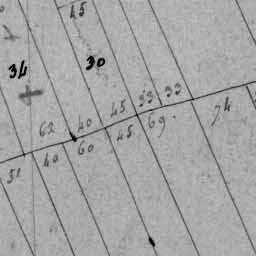 45
34
30
62 40 45 33 33
51 40 60 45 69. 74